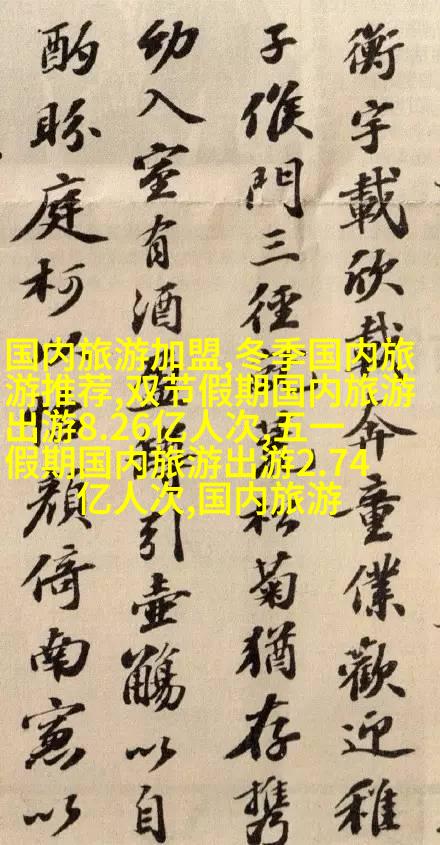 衡宇載欣載奔童僕歡迎稚
子候門三徑就荒松菊猶存携
幼入室有酒盈罇引壺觴以自
酌盼庭柯以怡顏倚南窓以
国内旅游加盟,冬季国内旅
游推荐,双节假期国内旅游
出游8.26亿人次,五一
假期国内旅游出游2.74
亿人次,国内旅游